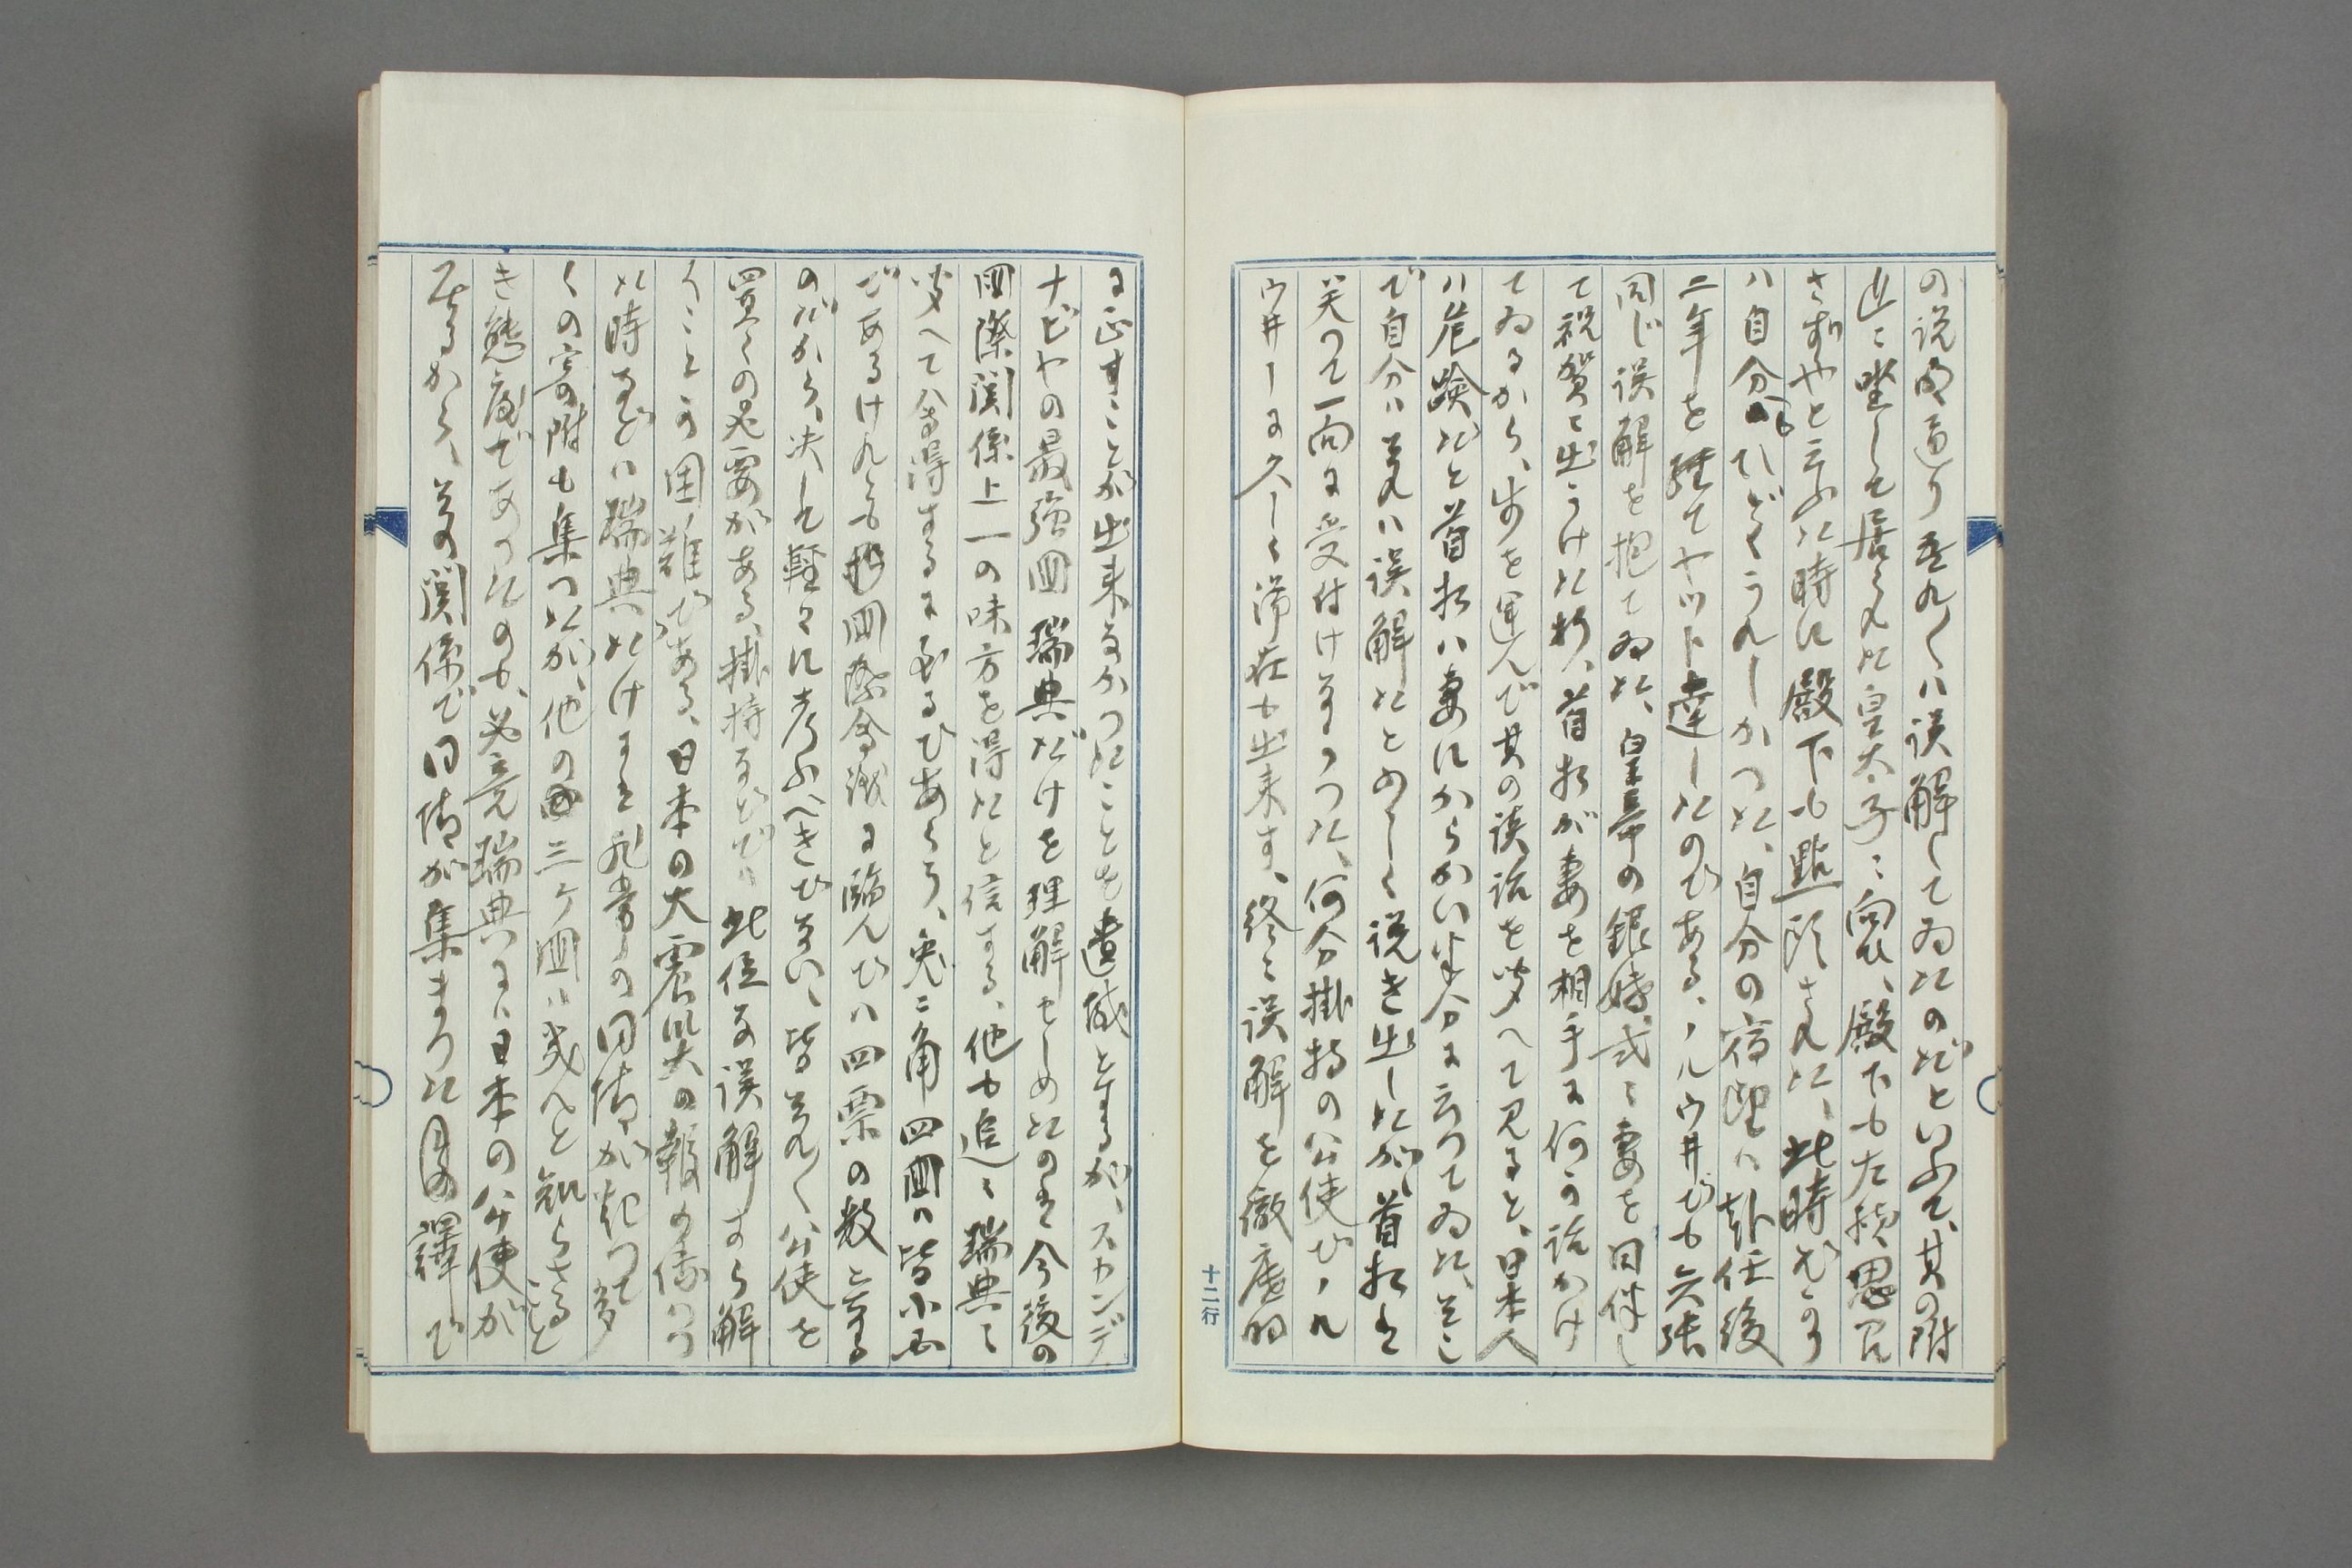 の説明通り吾れ〱ハ誤解してゐたのだといふて、其の附
近ニ坐して居られた皇太子ニ向ひ、殿下も左様思召
さずやと云ふた時に殿下も點頭された、此時ばかり
ハ自分もひどくうれしかつた、自分の宿望ハ赴任後
二年を経てヤツト達したのである、ノルウ井でも矢張
同じ誤解を抱てゐた、皇帝の銀婚式ニ妻を同伴し
て祝賀ニ出かけた折、首相が妻を相手に何か話かけ
てゐるから、歩を運んで其の談話を聞へて見ると、日本人
ハ危険だと首相ハ妻にからかい半分に云つてゐた、そこ
で自分ハ夫れハ誤解だとめ〱しく説き出したが、首相は
笑つて一向に受付けなかつた、何分掛持の公使でノル
ウ井ーに久しく滞在も出来ず、終ニ誤解を徹底的
に正すことが出来なかつたことを遺憾とするが、スカンデ
ナビヤの最強国瑞典だけを理解せしめたのは今後の
国際関係上一の味方を得たと信する、他も追〻瑞典ニ
聞へて会得するに至るであらう、兎ニ角四国ハ皆小西
であるけれども一旦国際会議に臨んでハ四票の数となる
のだから、决して軽々に考ふべきでない、皆それ〱公使を
置くの必要がある、掛持などでハ此位な誤解すら解
くことが困難である、日本の大震災の報の傳つ
た時などハ瑞典だけは非常の同情が起つて多
くの寄附も集つたが、他の三ケ国ハ殆んと知らざるごと
き態度であつたのも、必竟瑞典にハ日本の公使が
居るから、其の関係で同情が集まつた譯で
十二行